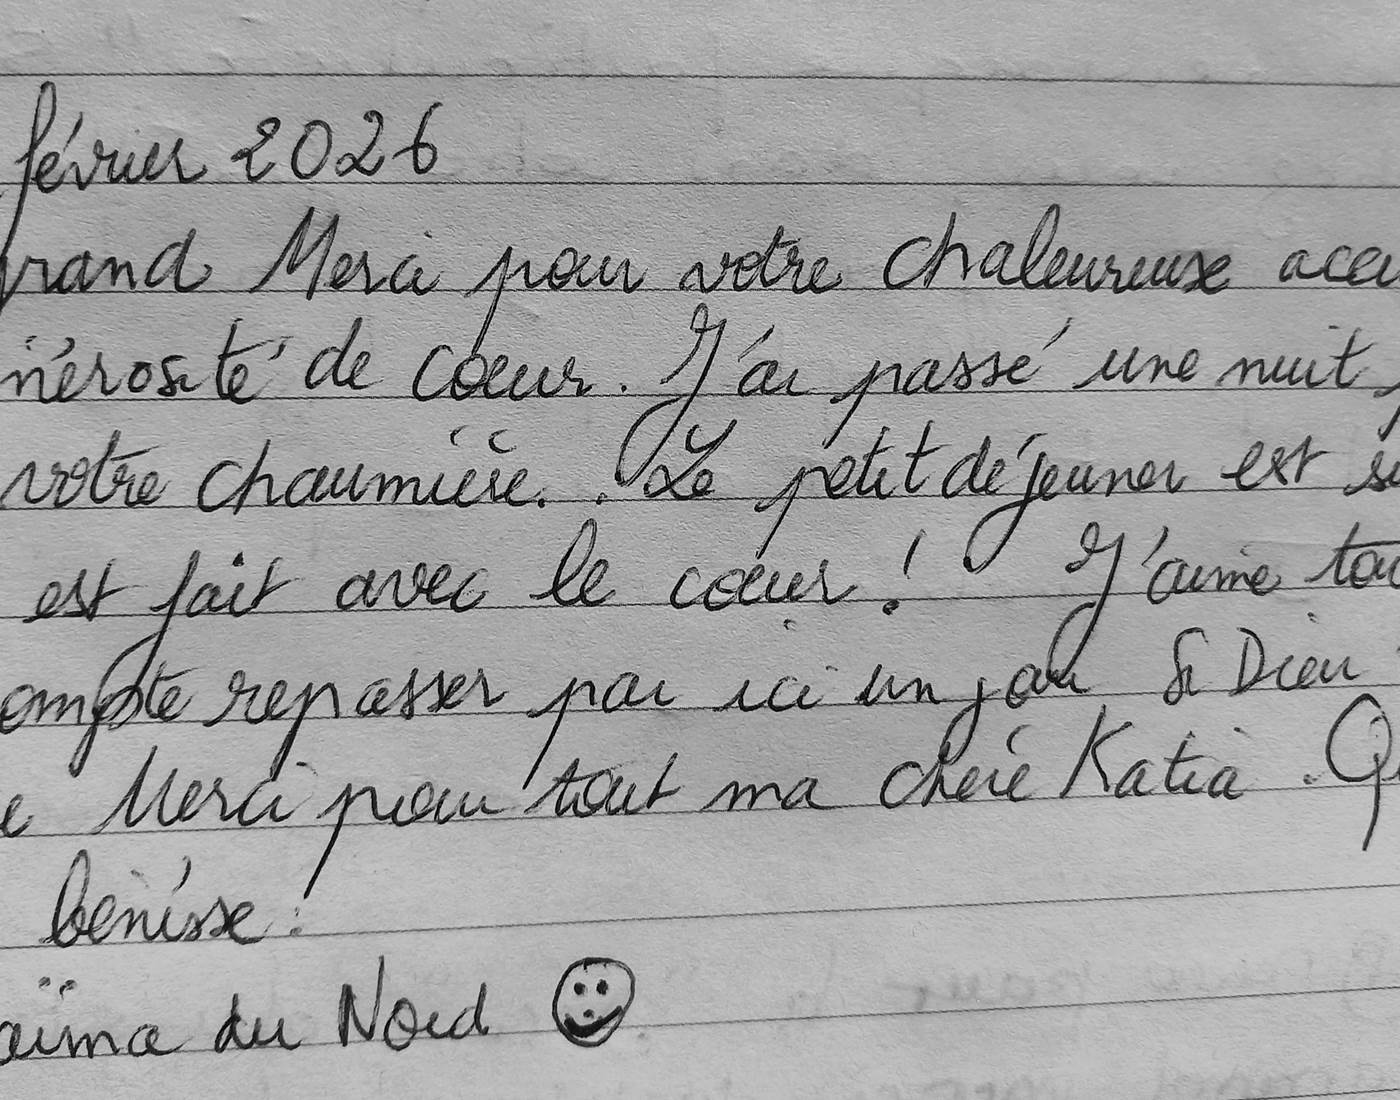 février 2026
rand Merci pour votre chaleureuxe accu
nérosité de cœur. J'ai passé une nuit
votre chaumière. Le petit déjeuner est
est fait avec le cœur ! J'aime tou
ompte repasser par ici un jour Si Dieu
e Merci pour tout ma chère Katia. Q
bénisse.
aïma du Nord